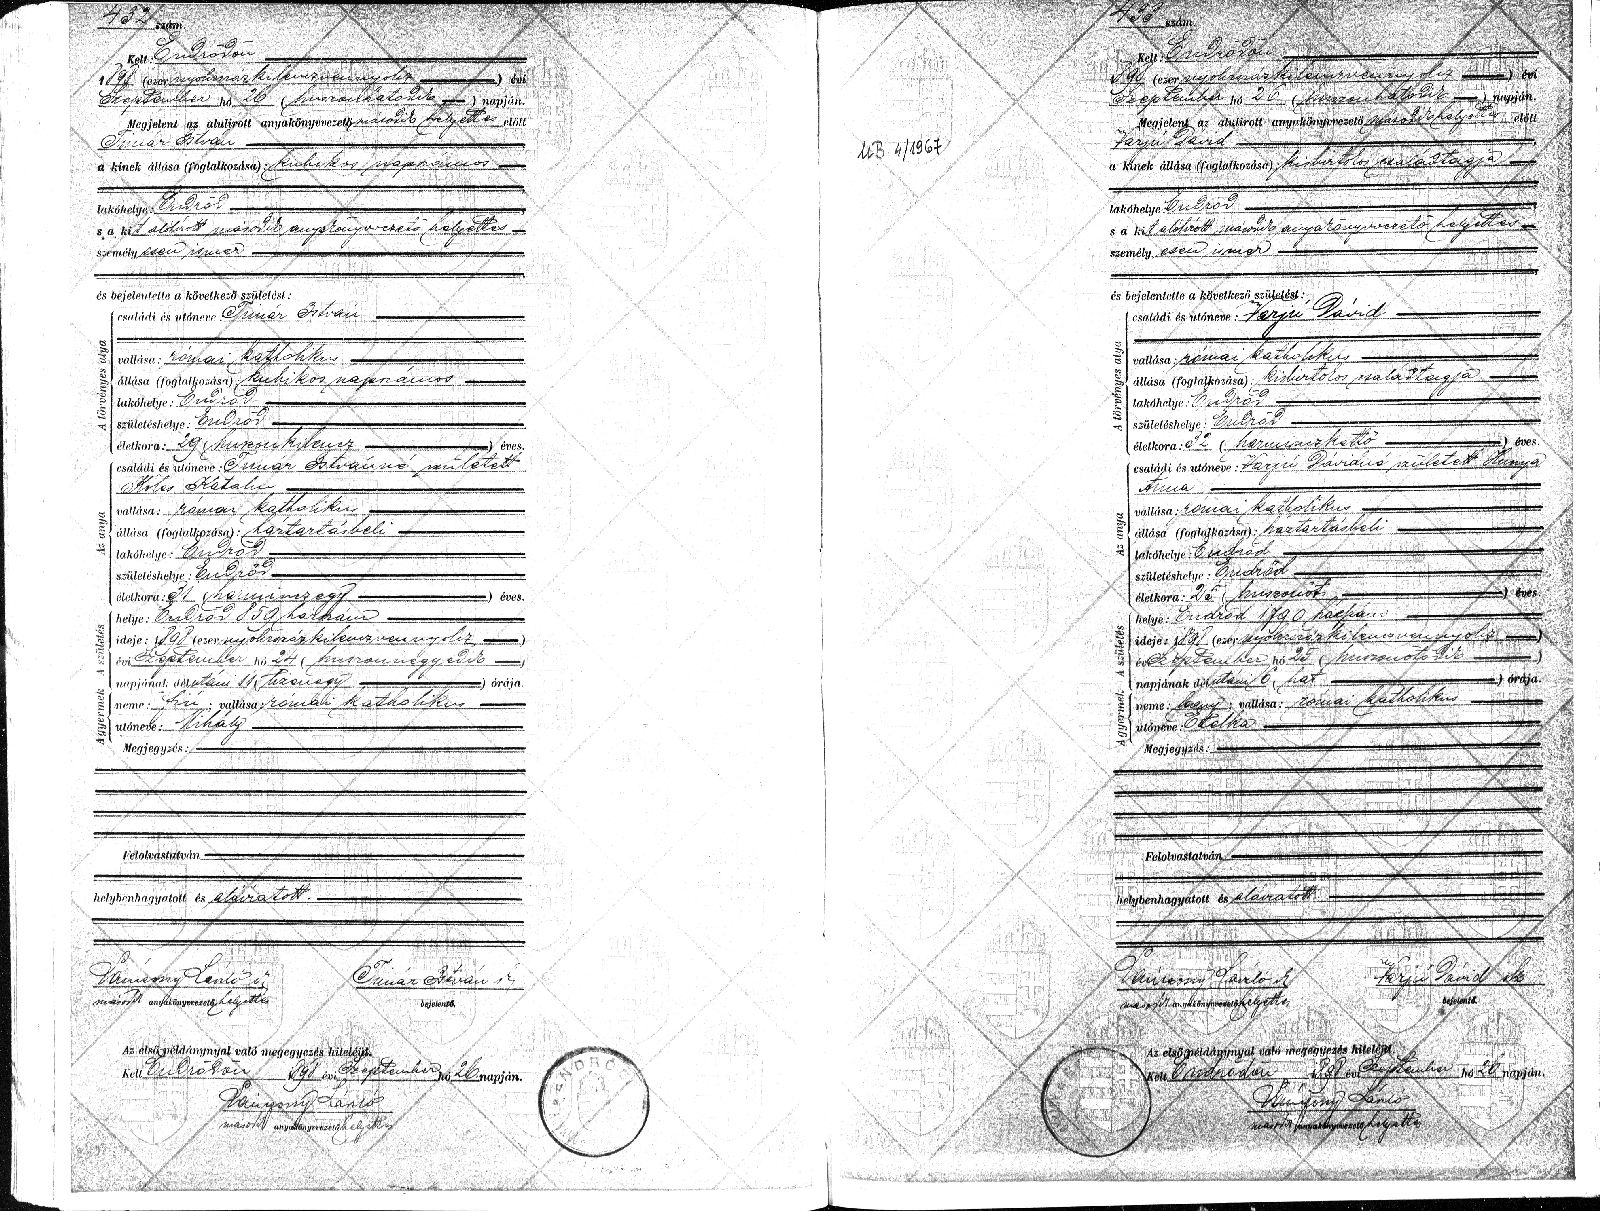 432 szám.
Kelt: Endrődön
1898 (ezer nyolcszázkilenczvennyolcz) évi
Szeptember hó 26 (huszonhatodik) napján.
Megjelent az alulirott anyakönyvvezető második helyettes előtt
Timár István
a kinek állása (foglalkozása): kubikos napszámos
lakóhelye: Endrőd
s a kit alólirott második anyakönyvvezető helyettes
személyesen ismer
és bejelentette a következő születést:
A törvényes atya
családi és utóneve: Timár István
vallása: római katholikus
állása (foglalkozása): kubikos napszámos
lakóhelye: Endrőd
születéshelye: Endrőd
életkora: 29 (huszonkilencz) éves.
Az anya
családi és utóneve: Timár Istvánné született
Katalin
vallása: római katholikus
állása (foglalkozása): háztartásbeli
lakóhelye: Endrőd
születéshelye: Endrőd
életkora: 31 (harminczegy) éves.
A születés
helye: Endrőd 859 házszám
ideje: 1898 (ezer nyolcszázkilenczvennyolcz)
évi Szeptember hó 24 (huszonnegyedik)
napjának délutáni 11 (tizenegy) órája.
A gyermek
neme: fiú; vallása: római katholikus
utóneve: Mihály
Megjegyzés:
Felolvastatván
helybenhagyatott és aláiratott.
László Timár István sk
második anyakönyvvezető helyettes bejelentő.
Az első példánynyal való megegyezés hiteléül.
Kelt Endrődön 1898 évi Szeptember hó 26 napján.
László
második anyakönyvvezető helyettes
ENDRŐD
MB 4/1967
433 szám.
Kelt: Endrődön
1898 (ezer nyolcszázkilenczvennyolcz) évi
Szeptember hó 26 (huszonhatodik) napján.
Megjelent az alulirott anyakönyvvezető második helyettes előtt
Varjú Dávid
a kinek állása (foglalkozása): kisbirtokos családtagja
lakóhelye: Endrőd
s a kit alólirott második anyakönyvvezető helyettes
személyesen ismer
és bejelentette a következő születést:
A törvényes atya
családi és utóneve: Varjú Dávid
vallása: római katholikus
állása (foglalkozása): kisbirtokos családtagja
lakóhelye: Endrőd
születéshelye: Endrőd
életkora: 32 (harminczkettő) éves.
Az anya
családi és utóneve: Varjú Dávidné született Hunya
Anna
vallása: római katholikus
állása (foglalkozása): háztartásbeli
lakóhelye: Endrőd
születéshelye: Endrőd
életkora: 25 (huszonöt) éves
A születés
helye: Endrőd 1790 házszám
ideje: 1898 (ezer nyolcszázkilenczvennyolcz)
évi Szeptember hó 25 (huszonötödik)
napjának délutáni 6 (hat) órája.
A gyermek
neme: leány; vallása: római katholikus
utóneve: Etelka
Megjegyzés:
Felolvastatván
helybenhagyatott és aláiratott
László Varjú Dávid sk
második anyakönyvvezető helyettes bejelentő.
Az első példánynyal való megegyezés hiteléül.
Kelt Endrődön 1898 évi Szeptember hó 26 napján.
László
második anyakönyvvezető helyettes